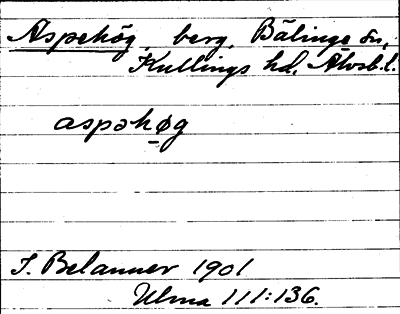 Aspehög, berg, Bälinge sn,
Kullings hd, Älvsb. l.
aspəhøg
I. Belanner 1901
Ulma 111:136.